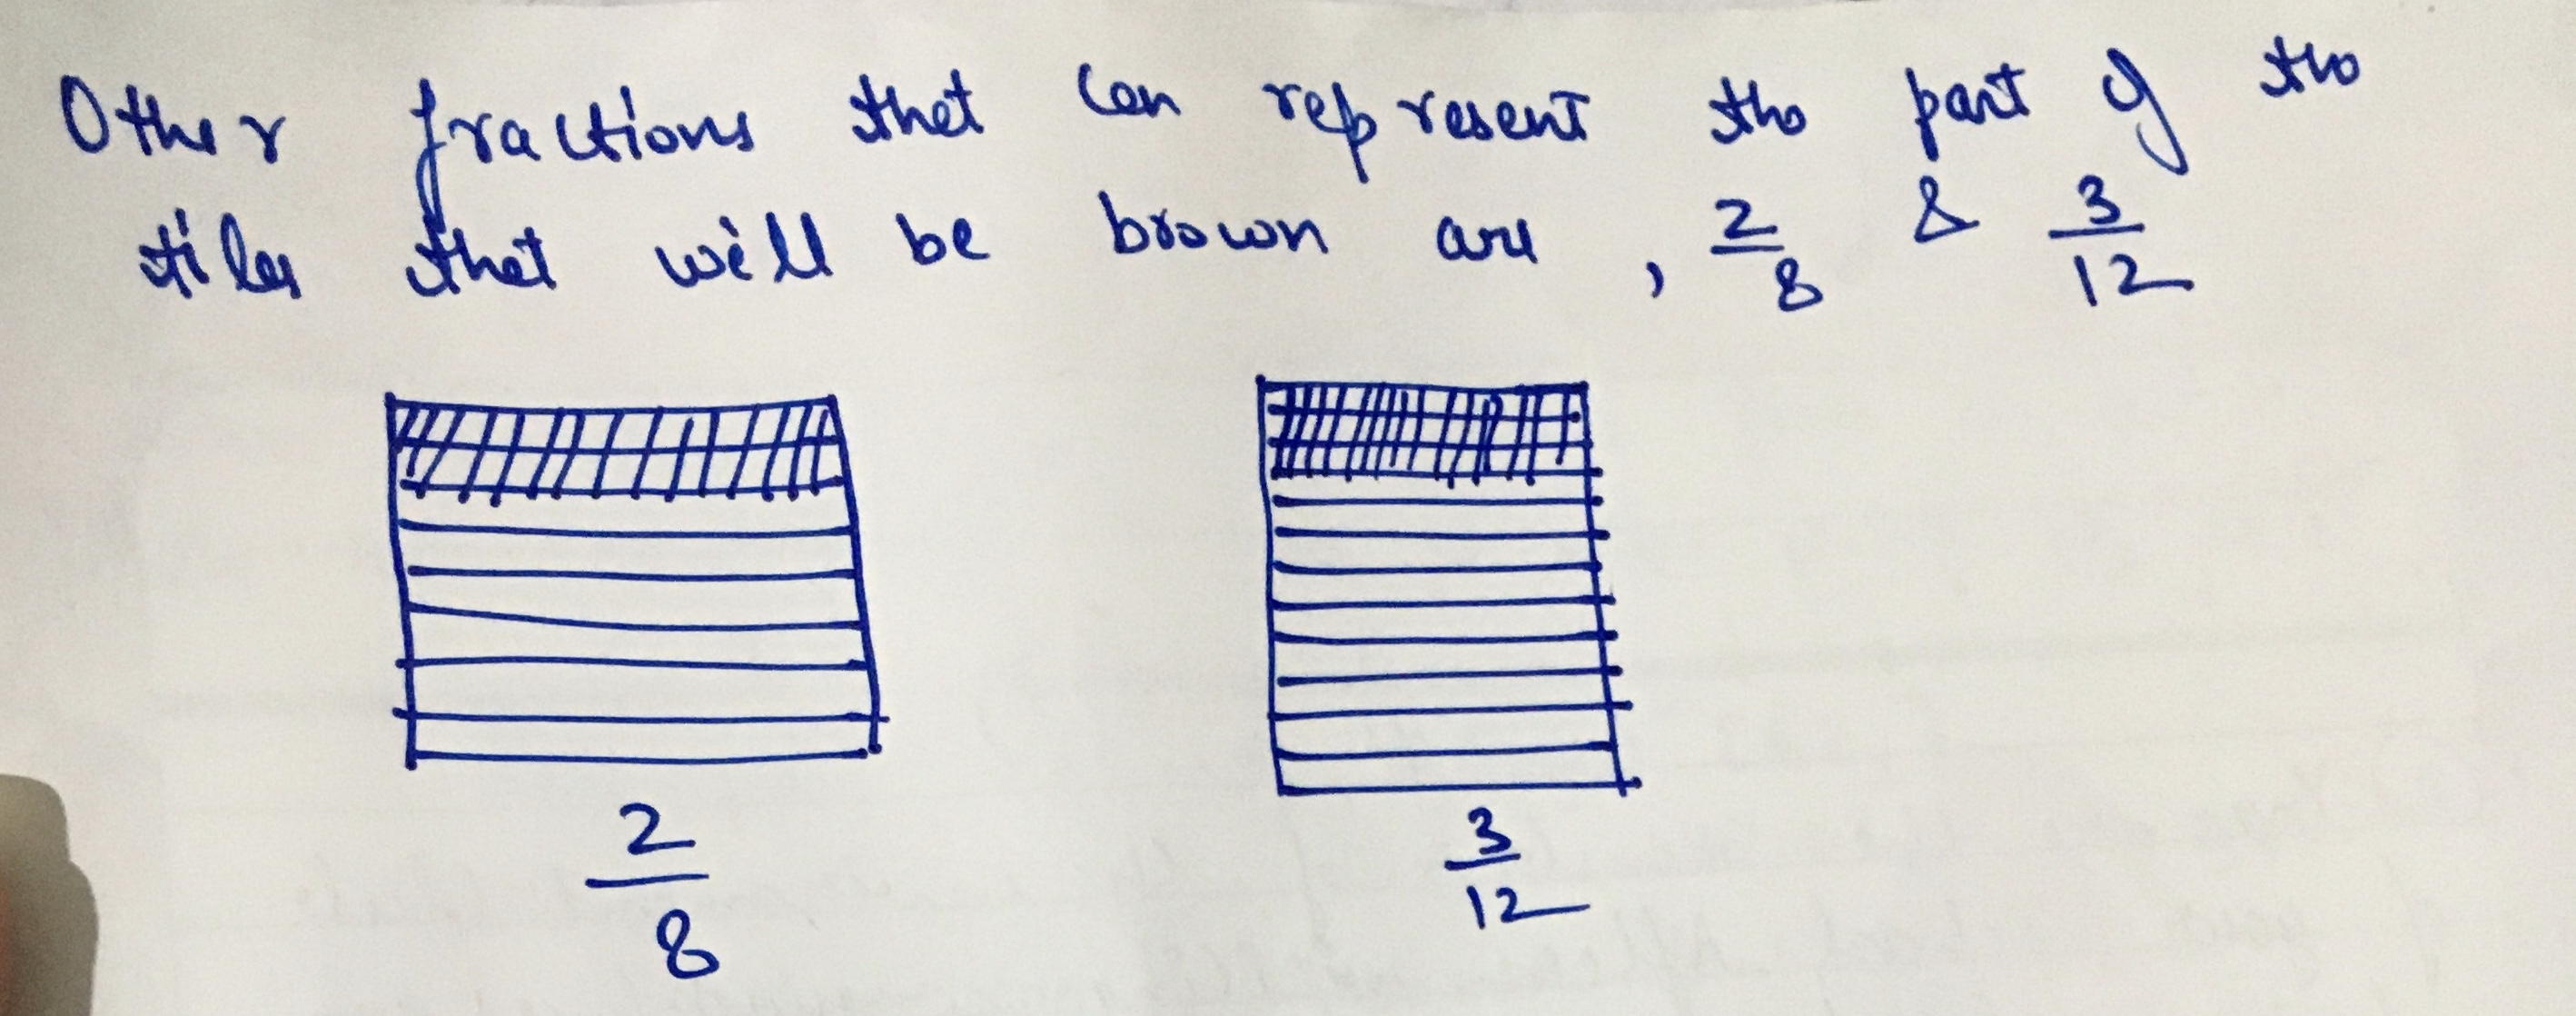 Other fractions that can represent the part of the
tiles that will be brown are , 2/8 & 3/12
2/8
3/12